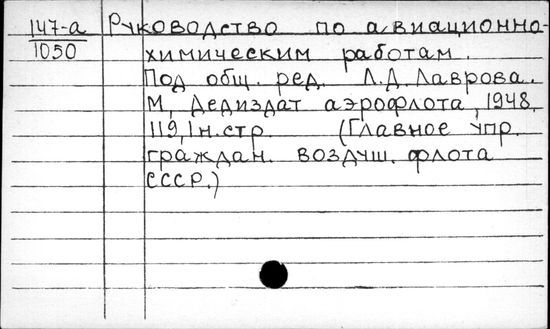 147-а Руководство по авиационно-
1050 химическим работам.
Под общ. ред. Л.Д. Лаврова.
М, Дедиздат аэрофлота, 1948.
119, 1 н. стр. (Главное упр.
граждан. воздуш. флота
СССР.)